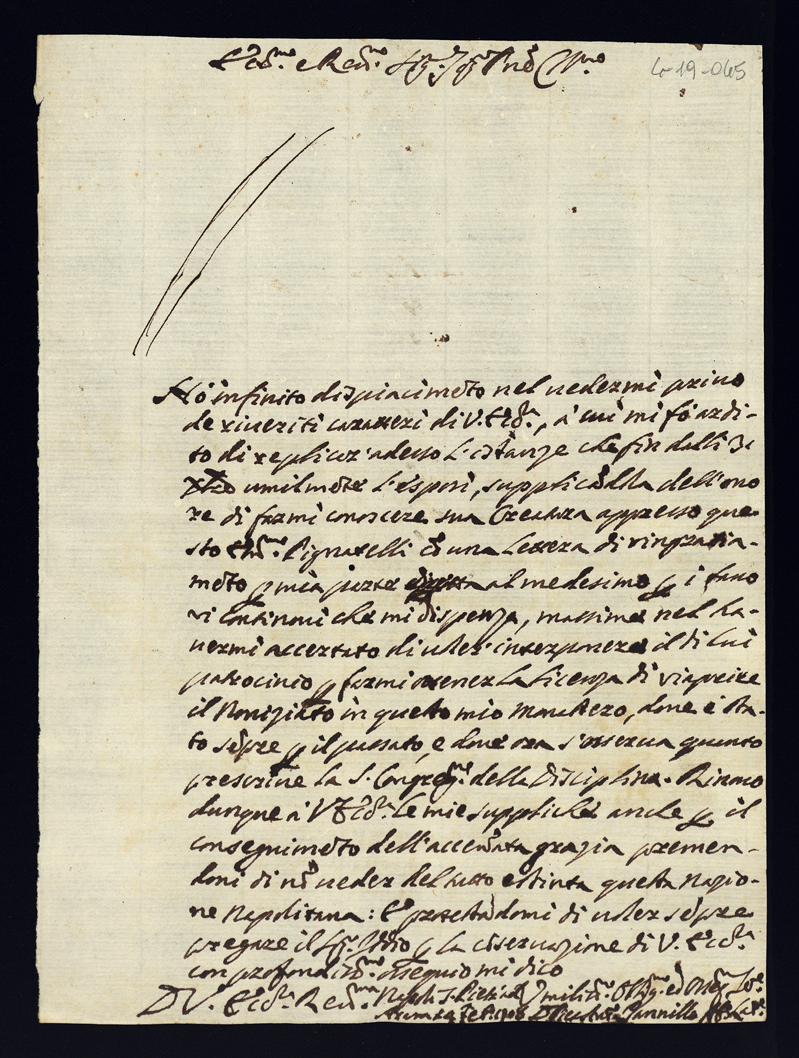 Ecc.mo e Re.mo Sig.r Sig.r Pnē C.mo
Lo-19-045
Hò infinito dispiacim̄to nel vedermi privo
de riveriti caratteri di V. Ecc.a, à cui mi fò ardi-
to di replicar' adesso l'istanze che fin dalli 31
umilm̄te l'esposi, supplicādola dell'ono
re di farmi conoscere sua Creatura appresso que-
sto Em.mo Pignatelli cō una Lettera di ringratia-
m̄to p mia parte al medesimo p i favo
ri continoui che mi dispenza, massime nel ha-
vermi accertato di voler' interponere il di lui
patrocinio p farmi ottener la licenza di riaprire
il Noviziato in questo mio Monastero, dove è sta-
to sēpre p il passato, e dove ora s'osserva quanto
prescrive la S. Congreg.ne della Disciplina. Rinovo
dunque à V. Ecc.a le mie suppliche anche p il
conseguim̄to dell'accēnata grazia premen-
domi di nō veder del tutto estinta questa Nazio-
ne Napolitana: E protestādomi di voler sēpre
pregare il Sig.r Iddio p la cōservazione di V. Ecc.a
con profondiss.mo ossequio mi dico
D V. Ecc.a Re.ma Napoli S. Pietro Umiliss.o Oblig.mo ed